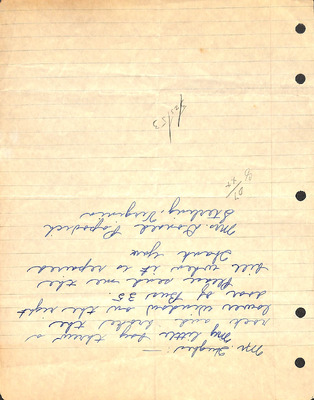 Mr. Hughes —
My little boy threw a
rock and broke the
lower window on the right
door of Bus 35.
Please send me the
bill when it is repaired
Thank you
Mrs. Donald
Sterling, Virginia